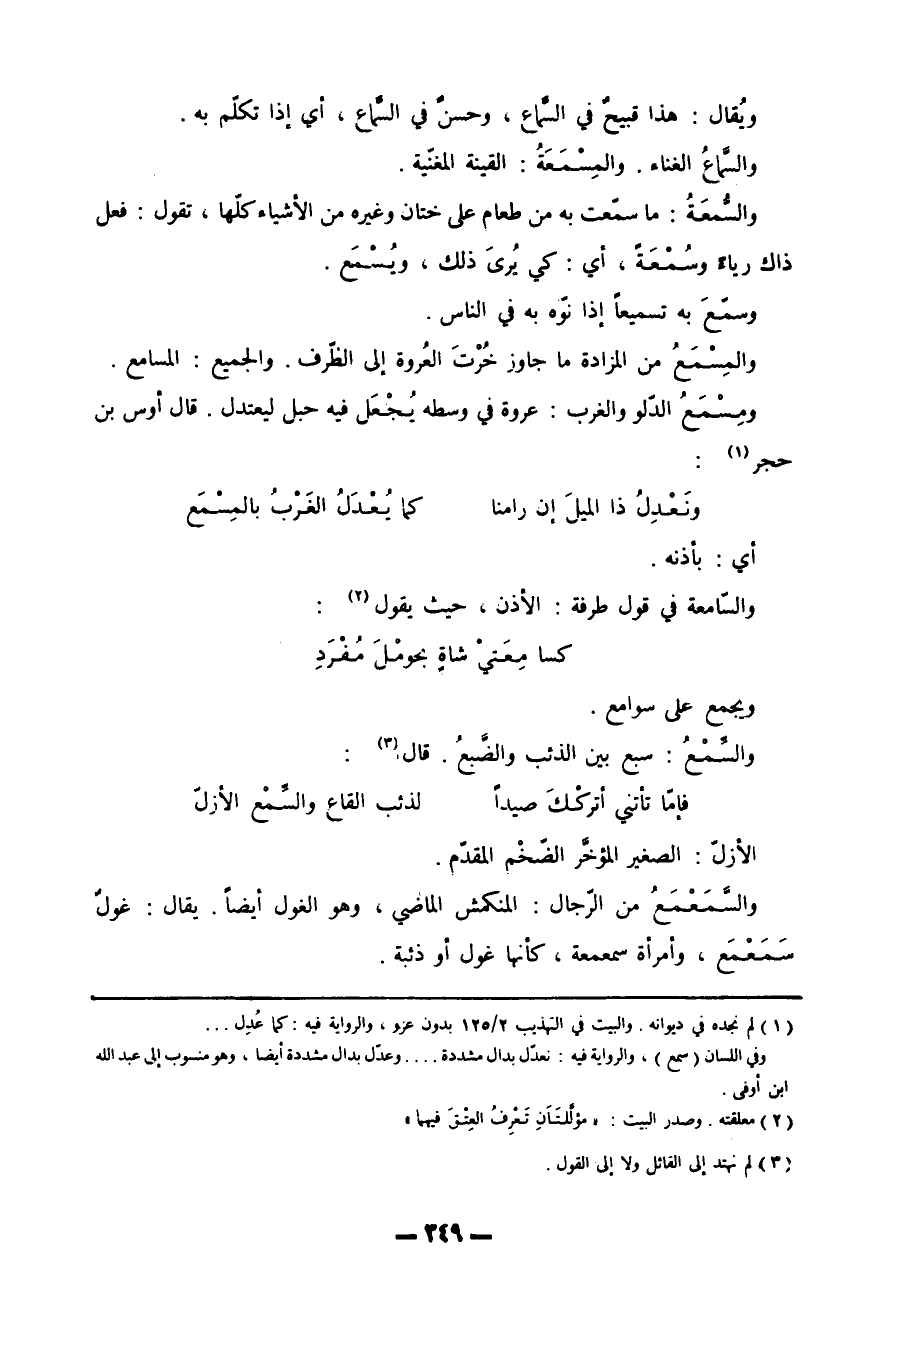 ويُقال : هذا قبيحٌ في السَّماع ، وحسنٌ في السَّماع ، أي إذا تكلّم به .
والسَّماعُ الغناء . والمِسْمَعَةُ : القينة المغنّية .
والسُّمعَةُ : ما سمّعت به من طعام على ختان وغيره من الأشياء كلّها ، تقول : فعل
ذاك رياء وسُمْعَةً ، أي : كي يُرىَ ذلك ، ويُسْمَع .
وسمّعَ به تسميعاً إذا نوّه به في الناس .
والمِسْمَعُ من المزادة ما جاوز خُرْتَ العُروة إلى الظّرف . والجميع : المسامع .
ومِسْمَعُ الدّلو والغرب : عروة في وسطه يُجْعَل فيه حبل ليعتدل . قال أوس بن
حجر (١) :
ونَعْدِلُ ذا الميلَ إن رامنا كما يُعْدَلُ الغَرْبُ بالمِسْمَع
أي : بأذنه .
والسّامعة في قول طرفة : الأذن ، حيث يقول (٢) :
كسا مِعَتيْ شاةٍ بحومْلَ مُفْرَدِ
ويجمع على سوامع .
والسِّمْعُ : سبع بين الذئب والضَّبعُ . قال (٣) :
فإمّا تأتني أتركْكَ صيداً لذئب القاع والسِّمْع الأزلّ
الأزلّ : الصغير المؤخَّر الضّخْم المقدّم .
والسَّمَعْمَعُ من الرّجال : المنكمش الماضي ، وهو الغول أيضاً . يقال : غولٌ
سَمَعْمَع ، وأمرأة سمعمعة ، كأنها غول أو ذئبة .
(١) لم نجده في ديوانه . والبيت في التهذيب ١٢٥/٢ بدون عزو ، والرواية فيه : كما عُدِل ...
وفي اللسان ( سمع ) ، والرواية فيه : نعدّل بدال مشددة .... وعدّل بدال مشددة أيضا ، وهو منسوب إلى عبد الله
ابن أوفى .
(٢) معلقته . وصدر البيت : « مؤلَّلتَاَنِ تَعْرِفُ العِتْقَ فيهما »
(٣) لم نهتد إلى القائل ولا إلى القول .
— ٣٤٩ —